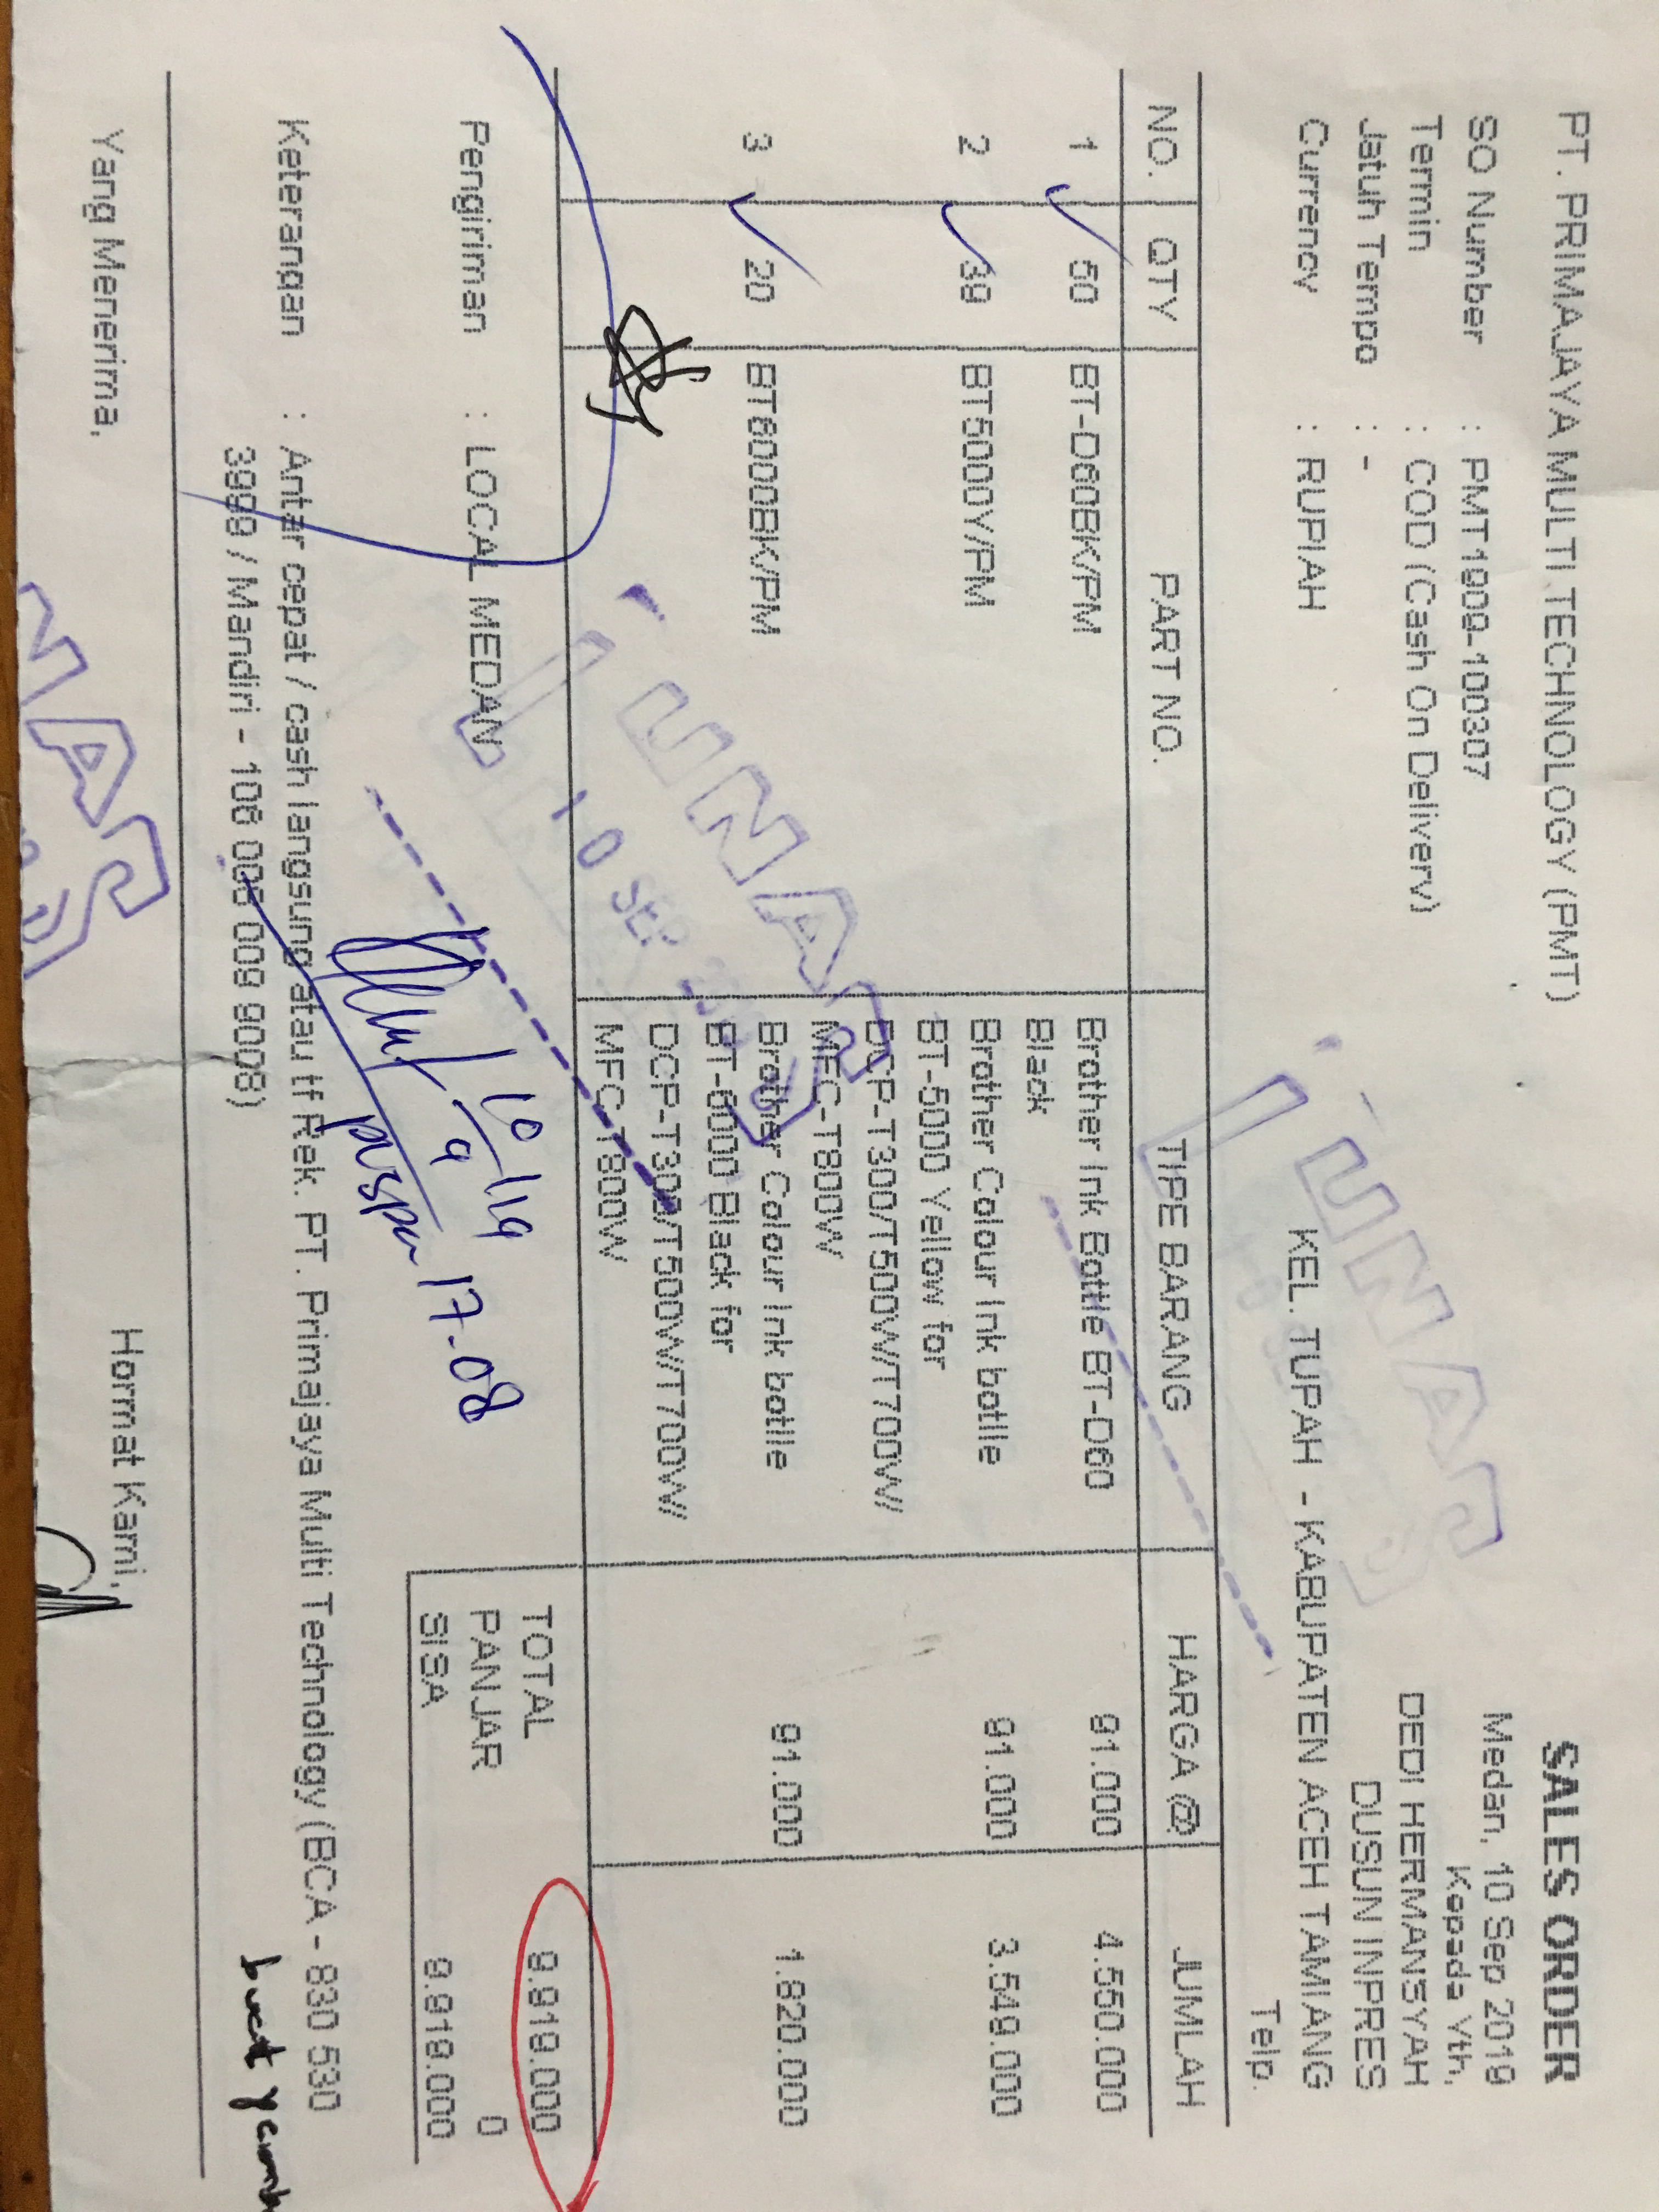 PT. PRIMAJAYA MULTI TECHNOLOGY (PMT)
SALES ORDER
SO Number : PMT1909-100307
Medan, 10 Sep 2019
Termin : COD (Cash On Delivery)
Kepada Yth,
Jatuh Tempo : -
DEDI HERMANSYAH
Currency : RUPIAH
DUSUN INPRES
KEL. TUPAH - KABUPATEN ACEH TAMIANG
Telp.
LUNAS
NO. QTY PART NO. TIPE BARANG HARGA @ JUMLAH
1 50 BT-D60BK/PM Brother Ink Bottle BT-D60 91.000 4.550.000
Black
2 39 BT5000Y/PM Brother Colour Ink botlle 91.000 3.549.000
BT-5000 Yellow for
DCP-T300/T500W/T700W/
MFC-T800W
3 20 BT6000BK/PM Brother Colour Ink botlle 91.000 1.820.000
BT-6000 Black for
DCP-T300/T500W/T700W/
MFC-T800W
LUNAS
10 SEP
TOTAL 9.919.000
Pengiriman : LOCAL MEDAN
PANJAR 0
SISA 9.919.000
10/9/19
17-08
puspa
Keterangan : Antar cepat / cash langsung atau tf Rek. PT. Primajaya Multi Technology (BCA - 830 530
3999 / Mandiri - 106 006 009 9008)
Yang Menerima,
Hormat Kami,
NAS